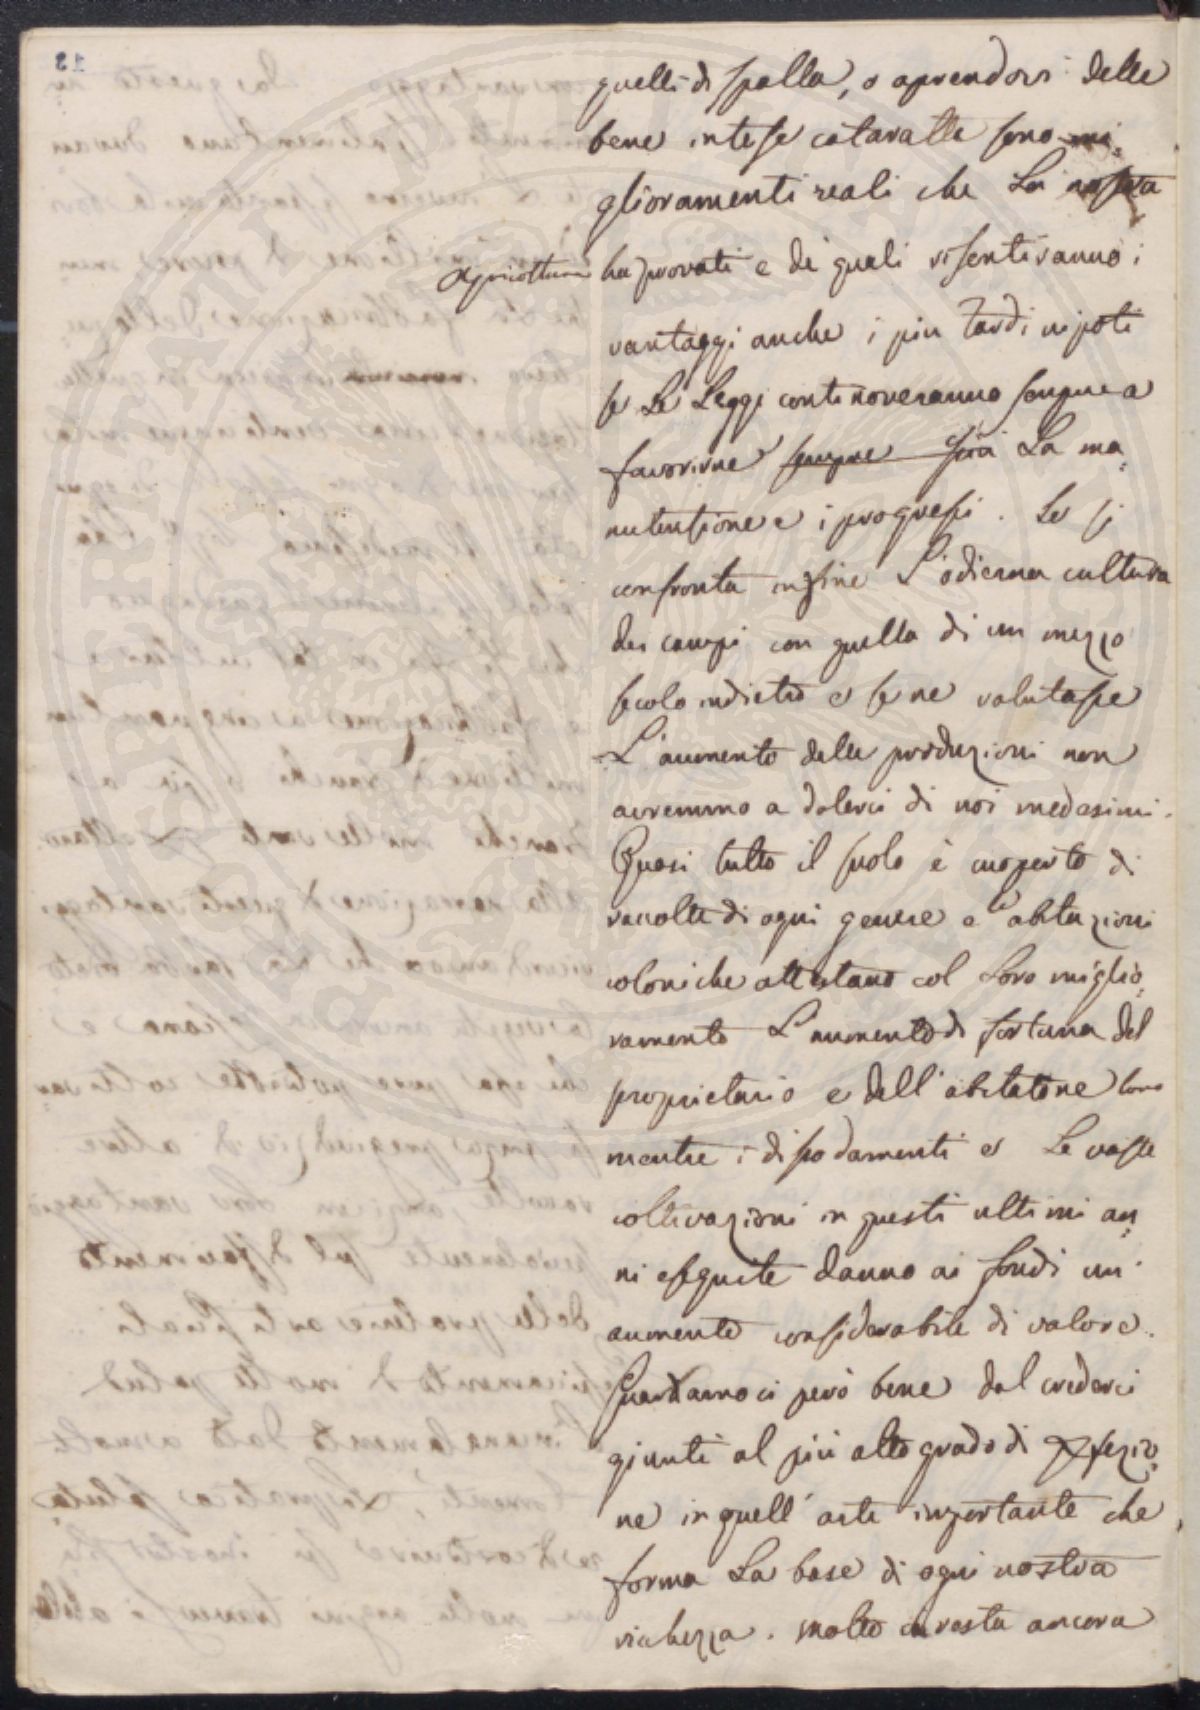 quelli di spalla, o aprendosi delle
bene intese cataratte sono mi=
glioramenti reali che La nostra
Agricoltura ha provati e de quali risentiranno i
vantaggi anche i piu tardi nipoti
se Le Leggi continoveranno sempre a
favorirne sempre La ma=
nutensione e i progressi. Se si
confronta infine L'odierna cultura
dei campi con quella di un mezzo
secolo indietro e se ne valutasse
L'aumento delle produzioni non
avremmo a dolerci di noi medesimi.
Quasi tutto il suolo è cuoperto di
raccolte di ogni genere e abitazioni
coloniche attestano col Loro miglio=
ramento L'aumento di fortuna del
proprietario e dell'abitatore loro
mentre i dissodamenti e Le vaste
coltivazioni in questi ultimi an=
ni eseguite danno ai fondi un'
aumento considerabile di valore.
Guardiamoci però bene dal crederci
giunti al più alto grado di perfezio=
ne in quell'arte importante che
forma La base di ogni nostra
richezza. molto ci resta ancora